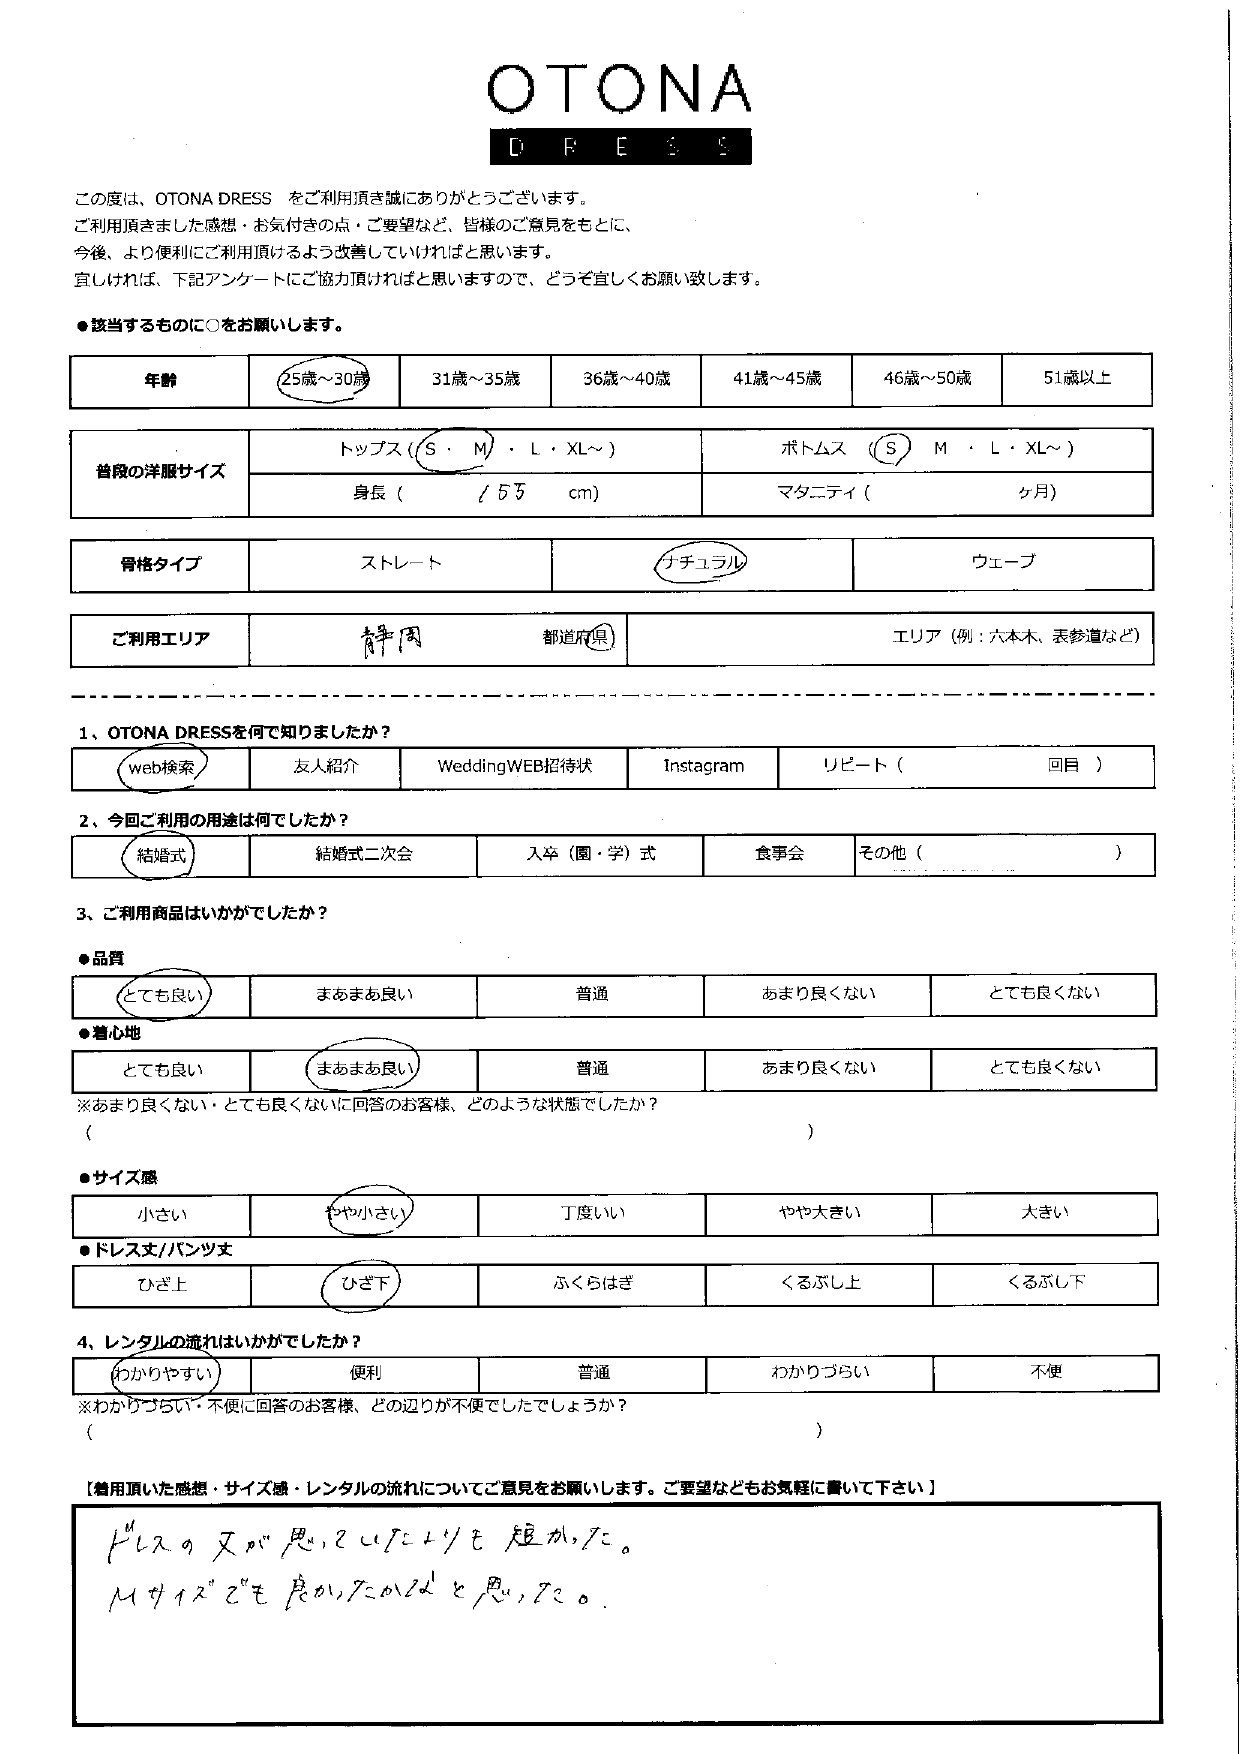 OTONA
DRESS
この度は、OTONA DRESS をご利用頂き誠にありがとうございます。
ご利用頂きました感想・お気付きの点・ご要望など、皆様のご意見をもとに、
今後、より便利にご利用頂けるよう改善していければと思います。
宜しければ、下記アンケートにご協力頂ければと思いますので、どうぞ宜しくお願い致します。
●該当するものに○をお願いします。
年齢 25歳～30歳 31歳～35歳 36歳～40歳 41歳～45歳 46歳～50歳 51歳以上
普段の洋服サイズ トップス（S・ M ・ L ・ XL～ ） ボトムス （S） M ・ L ・ XL～ ）
身長（ 155 cm） マタニティ（ ヶ月）
骨格タイプ ストレート ナチュラル ウェーブ
ご利用エリア 静岡 都道府県 エリア（例：六本木、表参道など）
1、OTONA DRESSを何で知りましたか？
web検索 友人紹介 WeddingWEB招待状 Instagram リピート（ 回目 ）
2、今回ご利用の用途は何でしたか？
結婚式 結婚式二次会 入卒（園・学）式 食事会 その他（ ）
3、ご利用商品はいかがでしたか？
●品質
とても良い まあまあ良い 普通 あまり良くない とても良くない
●着心地
とても良い まあまあ良い 普通 あまり良くない とても良くない
※あまり良くない・とても良くないに回答のお客様、どのような状態でしたか？
（ ）
●サイズ感
小さい やや小さい 丁度いい やや大きい 大きい
●ドレス丈/パンツ丈
ひざ上 ひざ下 ふくらはぎ くるぶし上 くるぶし下
4、レンタルの流れはいかがでしたか？
わかりやすい 便利 普通 わかりづらい 不便
※わかりづらい・不便に回答のお客様、どの辺りが不便でしたでしょうか？
（ ）
【着用頂いた感想・サイズ感・レンタルの流れについてご意見をお願いします。ご要望などもお気軽に書いて下さい】
ドレスの丈が思っていたよりも短かった。
Mサイズでも良かったかなと思った。